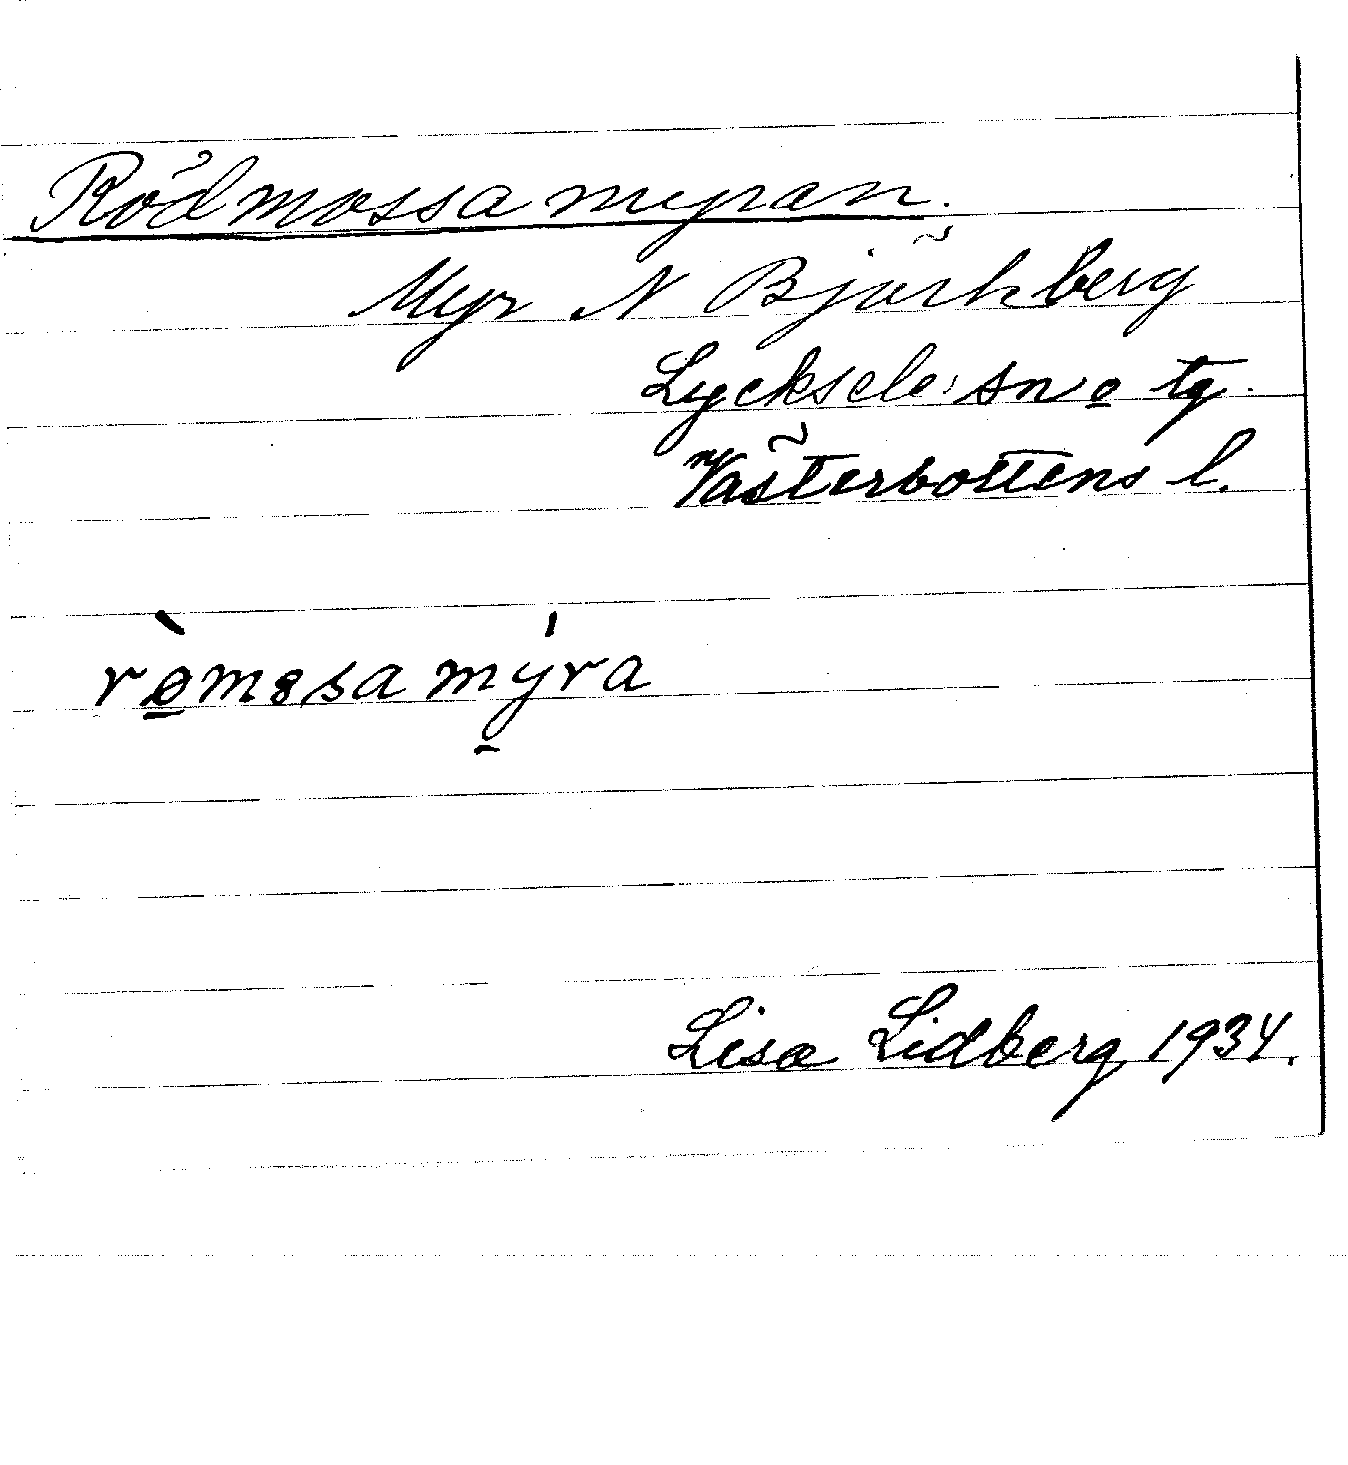 Rödmossamyran.
Myr N Björkberg
Lycksele sn o tg.
Västerbottens l.
rø̀mȣsamýra
Lisa Lidberg 1934.